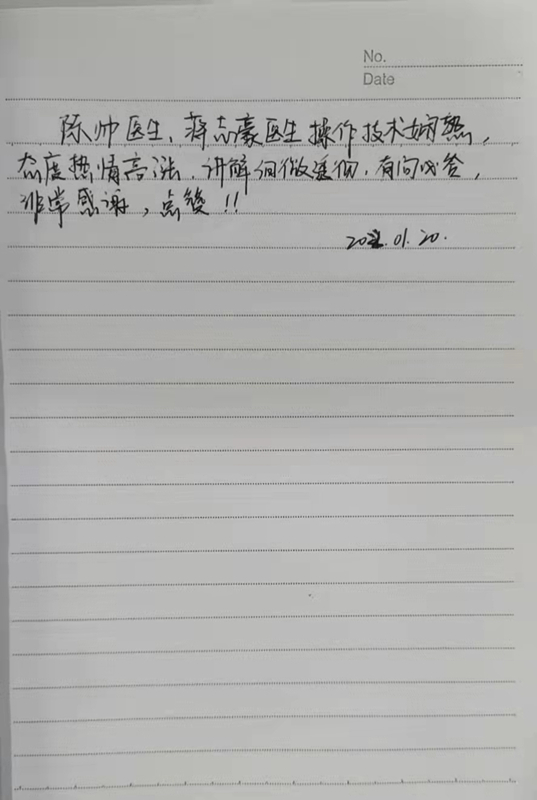 No.
Date
陈帅医生、蒋志豪医生操作技术娴熟,
态度热情高涨、讲解细微透彻,有问必答,
非常感谢,点赞!!
01.20.